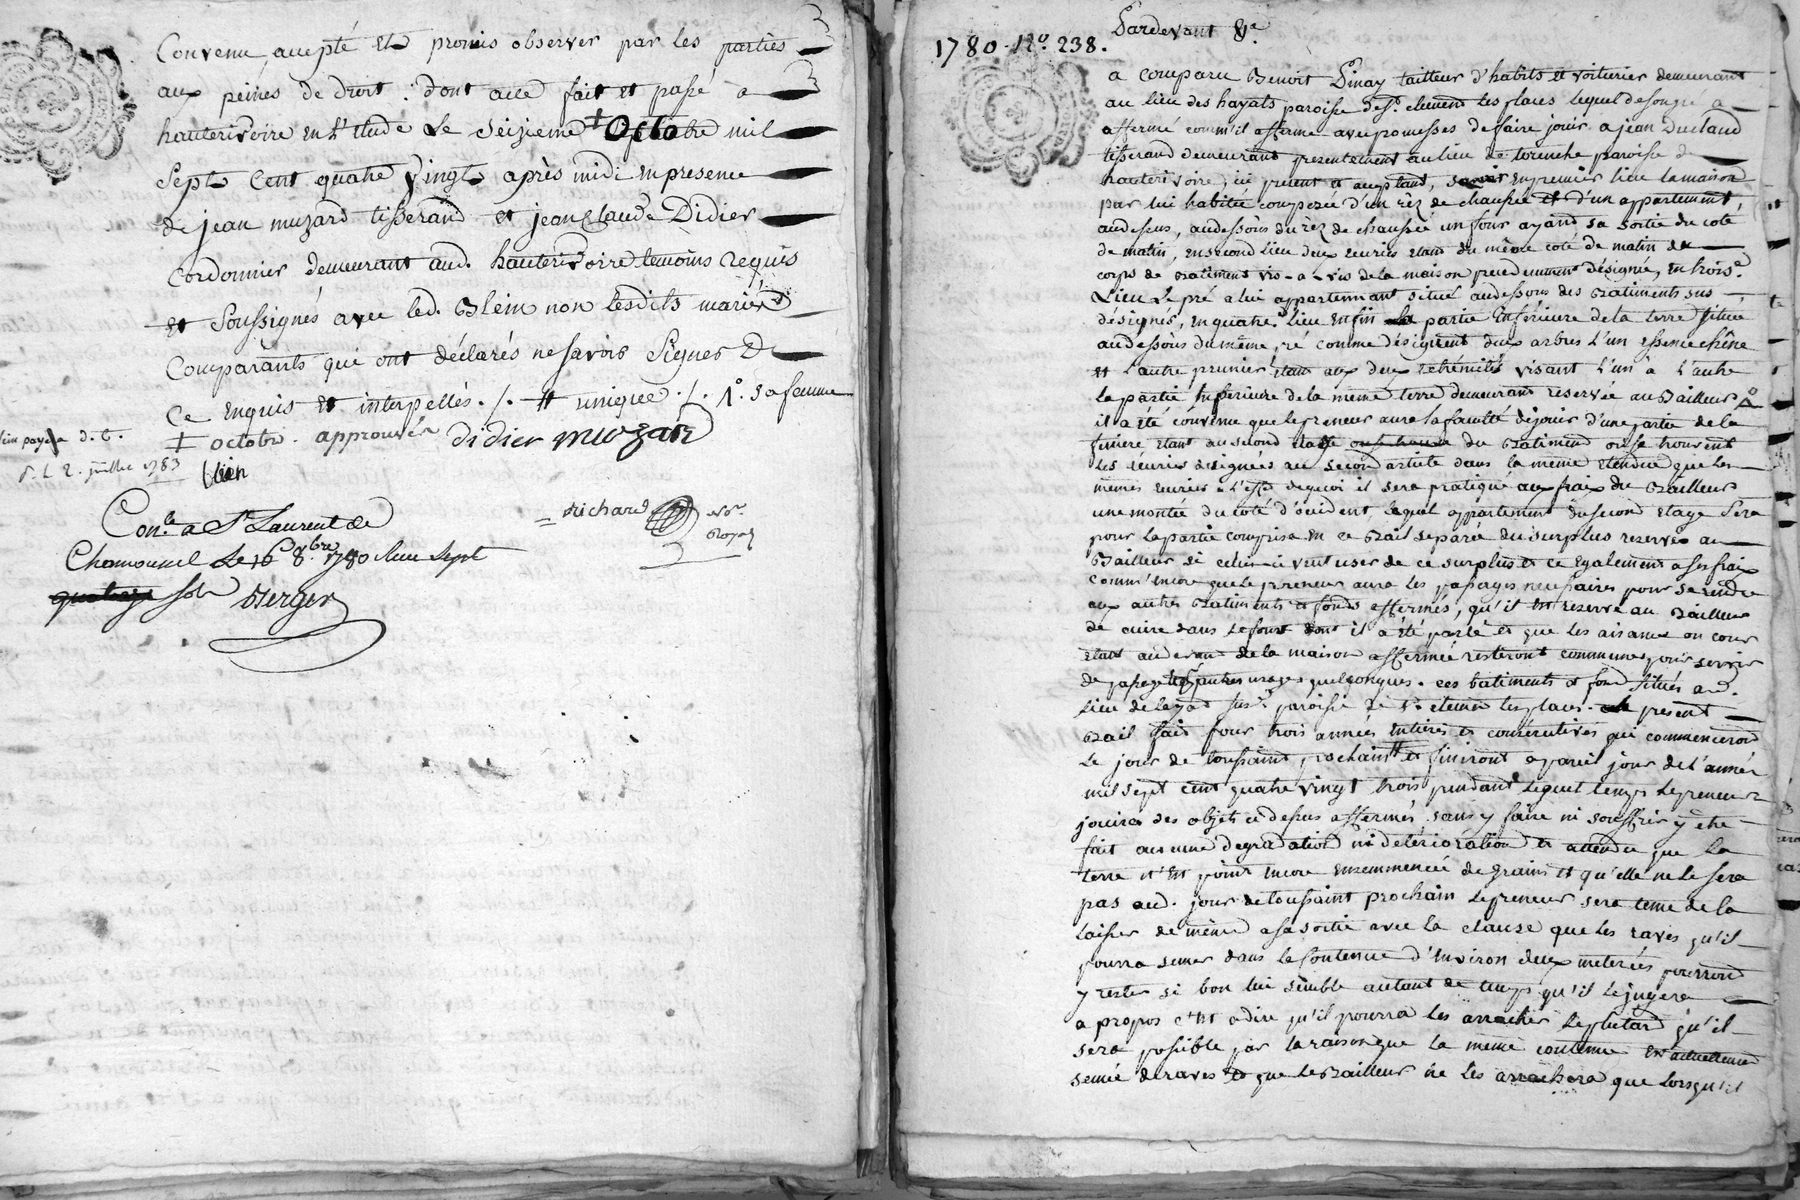 Convenu, accepté et promis observer par les parties
aux peines de droit. dont acte fait et passé a
hauterivoire en l'Etude le seizieme + Octobre mil
Sept cent quatre vingt après midi en presence
de jean muzard tisserand et jean Claude Didier
Cordonnier demeurant aud. hauterivoire temoins requis
et soussignés avec led. Blein non lesdits mariés
Comparants qui ont déclarés ne savoir signer de
Ce enquis et interpellés ./. # unique ./. 1.° sa femme
+ octobre approuvé didier muzard
1783
blein
Con.lé a St Laurent de
Chamousset le 16 8.bre 1780 Reçu Sept
sols Berger
Richard no.re Royal
1780. N.° 238.
Pardevant &.e
a comparu Benoit Pinay tailleur d'habits et voiturier demeurant
au lieu des hayats paroisse de St. clement les places lequel de son gré a
affermé comm'il afferme avec promesses de faire jouir a jean Duclaud
tisserand demeurant presentement au lieu de torenche paroisse de
hauterivoire, ici present et acceptant, savoir en premier lieu la maison
par lui habitée composée d'un rez de chaussée et d'un appartement,
au dessus, au dessous du rèz de chaussée un four ayant sa sortie du coté
de matin, en second lieu deux ecuries etant du même coté de matin du
corps de Batiment vis-a-vis de la maison precedemment désignée, en trois.e
Lieu Le pré a lui appartenant situé au dessous des Batiments sus
désignés, en quatre. lieu enfin la partie inférieure de la terre située
au dessous du même pré comme désignent deux arbres l'un essence chêne
et l'autre prunier etant aux deux extrémités visant l'un a l'autre
la partie inférieure de la même terre demeurant reservée au Bailleur
il a été convenu que le preneur aura la faculté de jouir d'une partie de la
feniere etant au second etage du Batiment ou se trouvent
les écuries désignées au second article dans la même etendue que les
mêmes ecuries a l'effet de quoi il sera pratiqué aux fraix du Bailleur
une montée du coté d'occident, lequel appartement du second etage sera
pour la partie comprise en ce Bail separée du surplus reservé au
Bailleur si celui-ci veut user de ce surplus et ce egalement a ses fraix
comm'encore que le preneur aura les passages necessaires pour se rendre
aux autres Batiments et fonds affermés, qu'il est reservé au Bailleur
de cuire dans le four dont il a été parlé et que les aisances ou cour
etant au devant de la maison affermée resteront communes pour servir
de passage et autres usages quelconques. ces batiments et fond situés aud.
lieu de hayat susd. paroisse de St. clement les places. le present
Bail fait pour trois années entières et consécutives qui commenceront
le jour de toussaint prochain # et finiront a pareil jour de l'année
mil sept cent quatre vingt trois pendant lequel temps le preneur
jouira des objets ci dessus affermés sans y faire ni souffrir y être
fait aucune degradation ni detérioration et attendu que la
terre n'est point encore ensemmencée de grains et qu'elle ne le sera
pas aud. jour de toussaint prochain le preneur sera tenu de la
laisser de même a sa sortie avec la clause que les raves qu'il
pourra semer dans le contenue d'environ deux meterées pourront
y rester si bon lui semble autant de temps qu'il le jugera
a propos c'est a dire qu'il pourra les arracher le plutard qu'il
sera possible par la raison que la même contenue est actuellement
semée de raves et que le Bailleur ne les arrachera que lorsqu'il